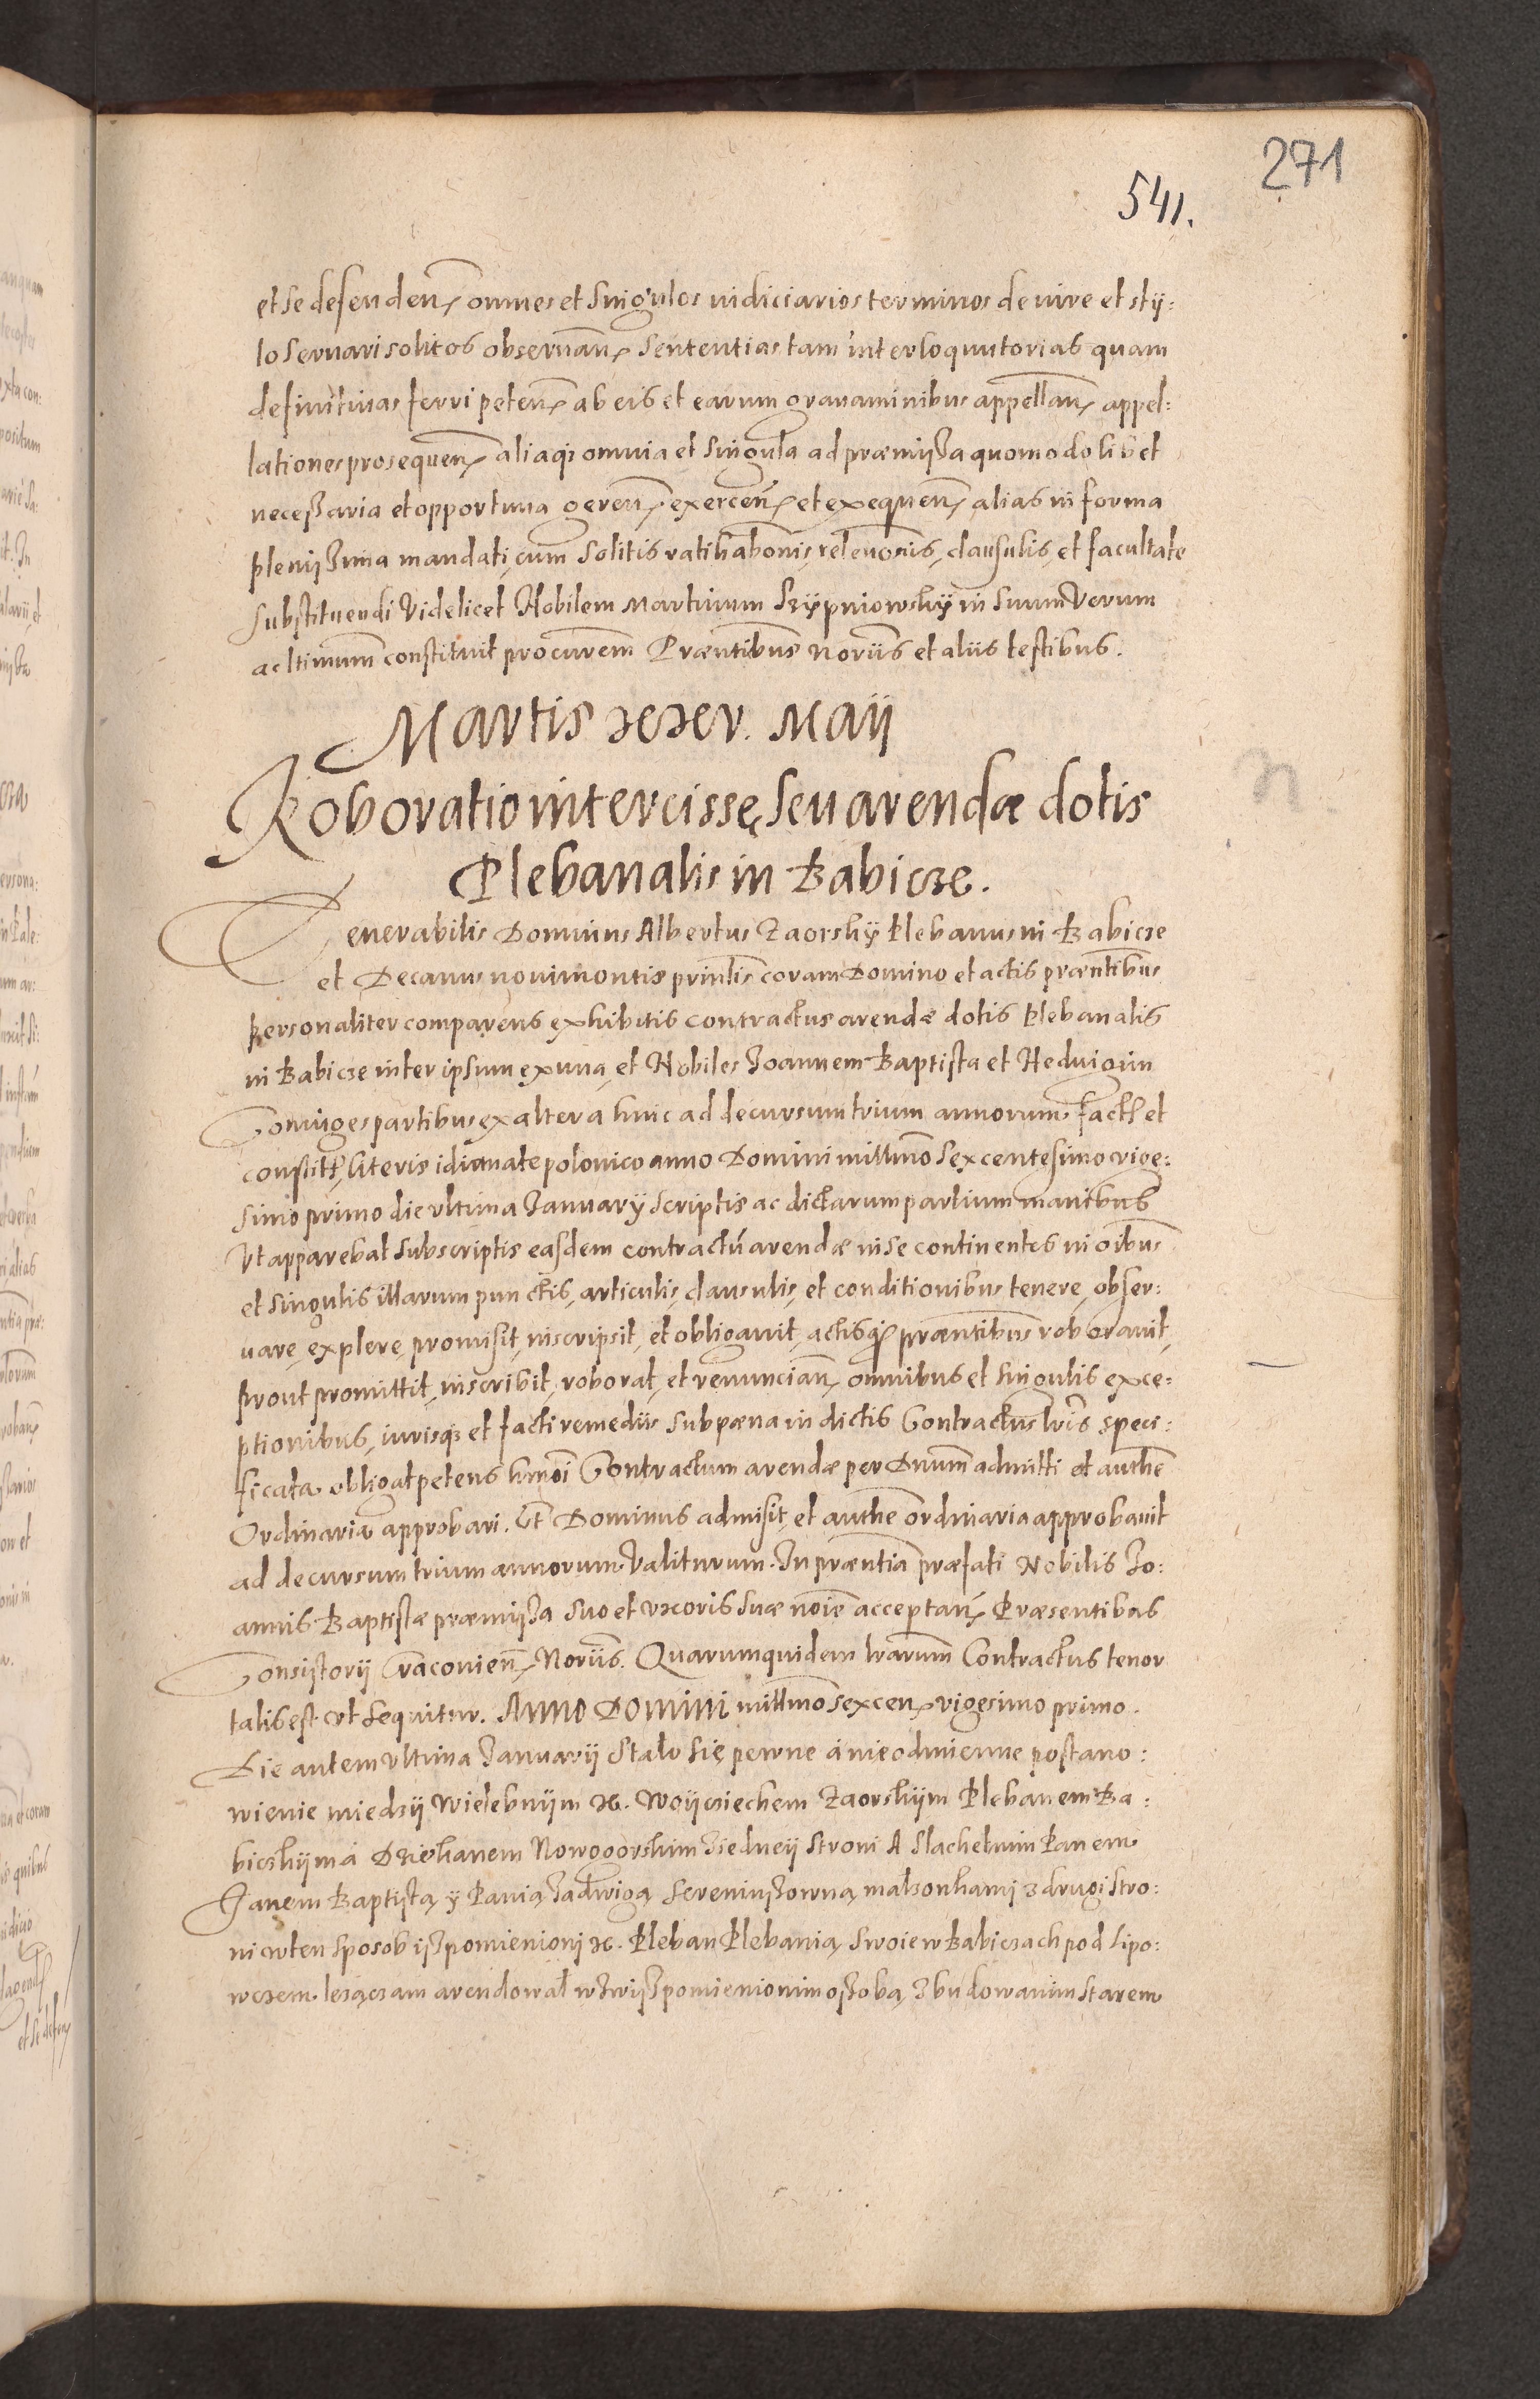 271
541.
et se defenden̄ omnes et singulos iudiciarios terminos de iure et sty:
lo seruari solitos obseruan̄ sententias tam interloquutorias quam
definitiuas ferri peten̄ ab eis et earum grauaminibus appellan̄ appel:
lationes prosequen̄ aliaq3 omnia et singula ad præmissa quomodolibet
necessaria et opportuna geren̄ exercen̄ et exequen̄ alias in forma
plenissima mandati, cum solitis ratihabōnis, releuōnis, clausulis, et facultate
substituendi Videlicet Nobilem Martinum Szypniowsky in suum Verum
ac ltimum̄ constituit procurem̄ Præntibus̄ Noriis̄ et aliis testibus.
Martis xxv. Maii
Roboratio intercissę seu arendæ dotis
Plebanalis in Babicze.
Venerabilis Dominus Albertus Zaorsky Plebanus in Babicze
et Decanus nouimontis prin̄tis coram Domino et actis præn̄tibus
personaliter comparens exhibitis contractus arendæ dotis Plebanalis
in Babicze inter ipsum ex una, et Nobiles Joannem Baptista et Heduigim
Coniuges partibus ex altera huic ad decursum trium annorum fact et
constitt, literis idiomate polonico anno Domini millmo sexcentesimo vige:
simo primo die vltima Januarÿ scriptis ac dictarum partium manibus
Vt apparebat subscriptis easdem contractū arendæ in se continentes in oībus
et singulis illarum punctis, articulis, clausulis, et conditionibus tenere, obser:
uare, explere, promisit, inscripsit, et obligauit, actisq3 præn̄tibus roborauit,
prout promittit, inscribit, roborat, et renuncian̄ omnibus et singulis exce:
ptionibus, iurisq3 et facti remediis sub pæna in dictis Contractus lr̄is speci:
ficata obligat petens hmōi Contractum arendæ per Dnum̄ admitti et authē
Ordinaria approbari. Et Dominus admisit, et authē ordinaria approbauit
ad decursum trium annorum valiturum. In præn̄tia præfati Nobilis Jo:
annis Baptistæ præmissa suo et vxoris suæ nōie acceptan̄ Præsentibus
Consistorii Cracouien̄ Noriis̄. Quarumquidem lrarum̄ Contractus tenor
talis est vt sequitur. Anno Domini millmo sexcen̄ vigesimo primo.
Die autem vltima Januarii Stało się pewne á nieodmienne postano:
wienie miedzÿ Wielebnÿm X. Woÿciechem Zaorskÿm Plebanem Ba:
bicskÿm á Dziekanem Nowogorskim z iedneÿ stroni A Slachetnim Panem
Janem Baptistą ÿ Panią Jadwigą Sereniniszowną małżonkami z drugi stro:
ni w ten sposob isz pomienioni X. Pleban Plebanią swoie w Babiczach pod Lipo:
wczem leżączam arendował wzwisz pomienionim osobą z budowanim starem